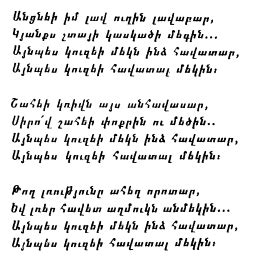 Անցնեի իմ լավ ուղին լավաբար,
Կյանքս չտայի կասկածի մեգին...
Այնպես կուզեի մեկն ինձ հավատար,
Այնպես կուզեի հավատալ մեկին:

Շահեի կռիվն այս անհավասար,
Սիրո՛վ շահեի փոքրին ու մեծին..
Այնպես կուզեի մեկն ինձ հավատար,
Այնպես կուզեի հավատալ մեկին:

Թող լռությունը ահեղ որոտար,
Եվ լռեր հավետ աղմուկն անմեկին...
Այնպես կուզեի մեկն ինձ հավատար,
Այնպես կուզեի հավատալ մեկին: